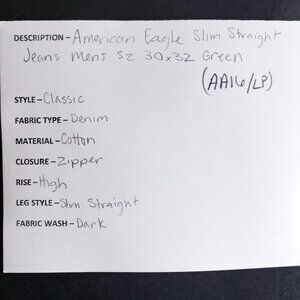 DESCRIPTION - American Eagle Slim Straight
Jeans Mens Sz 30x32 Green
(AA16/LP)
STYLE - Classic
FABRIC TYPE - Denim
MATERIAL - Cotton
CLOSURE - Zipper
RISE - High
LEG STYLE - Slim Straight
FABRIC WASH - Dark